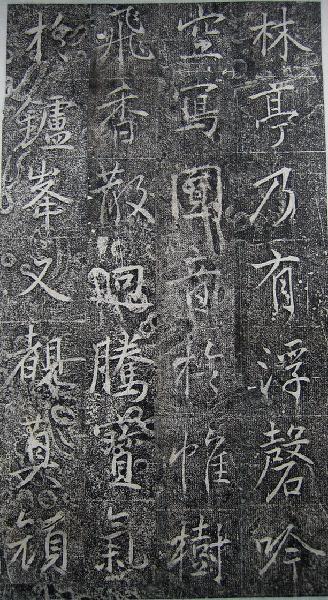 林亭乃有浮磬吟
空寫圓音於帷樹
飛香散迥騰寶氣
於鑪峯又覩真